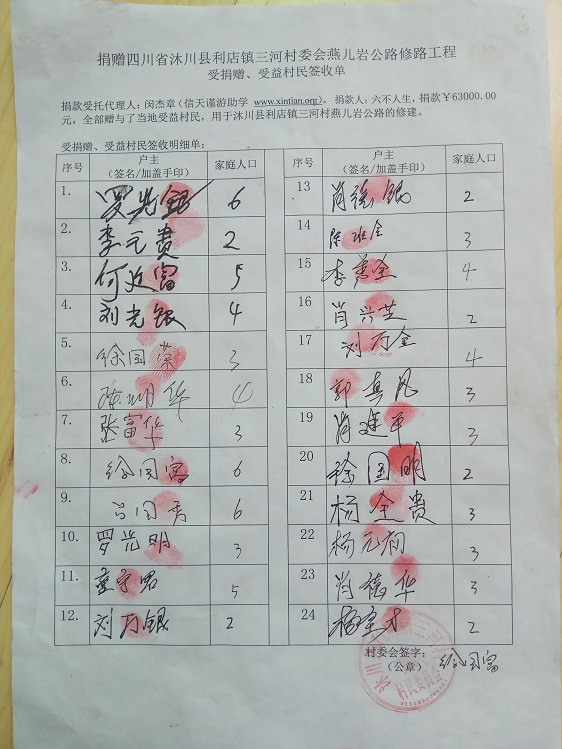 捐赠四川省沐川县利店镇三河村委会燕儿岩公路修路工程
受捐赠、受益村民签收单
捐款受托代理人：闵杰章（信天谨游助学 www.xintian.org）。捐款人：六不人生，捐款￥63000.00
元，全部赠与了当地受益村民，用于沐川县利店镇三河村燕儿岩公路的修建。
受捐赠、受益村民签收明细单：
序号 户主（签名/加盖手印） 家庭人口
1. 罗光银 6
2. 李元贵 2
3. 何近富 5
4. 刘光银 4
5. 徐国荣 3
6. 华 4
7. 张富华 3
8. 徐国富 6
9. 国秀 6
10. 罗光明 3
11. 童宇君 5
12. 刘万银 2
序号 户主（签名/加盖手印） 家庭人口
13 肖德银 2
14 全 3
15 李善全 4
16 肖兴芝 2
17 刘万全 4
18 郭真凡 3
19 肖建平 3
20 徐国明 2
21 杨全贵 3
22 杨元初 3
23 肖德华 3
24 杨才 2
村委会签字：徐国富
（公章）
沐川 三河 村民委员会